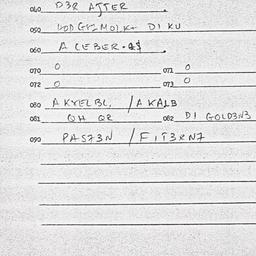 040 D3R AJTER
050 DI KU
060 A CEBER.
070 0 071 0
072 0 073 0
080 AKXELBL, / A KALB
081 QH QR 082 DI GOLD3N3
090 PAS73N / FIT3RN7